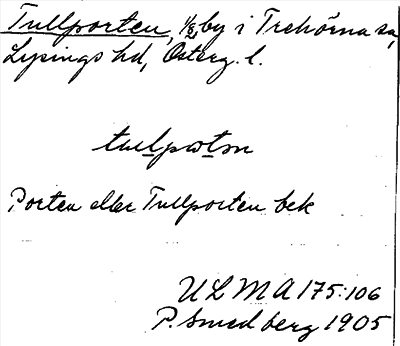 Tullporten, 1/8, by i Trehörna sn,
Lysings hd, Österg. l.
tullportn
Porten eller Tullporten bek
ULMA 175:106
P. Smedberg 1905